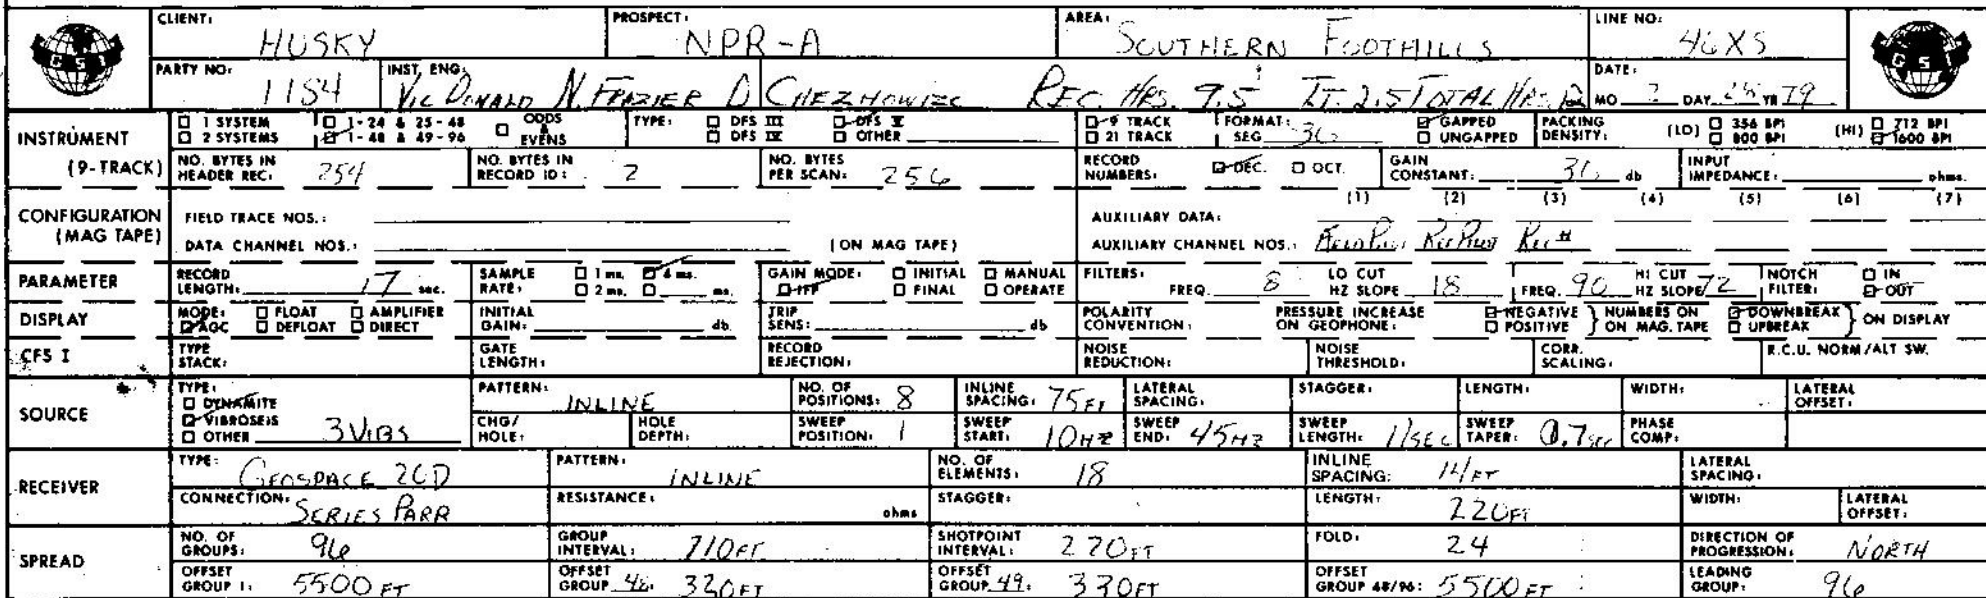 CLIENT: HUSKY PROSPECT: NPR-A AREA: SOUTHERN FOOTHILLS LINE NO: 46X5
GSI GSI
PARTY NO: 1184 INST. ENG. VIC DONALD N FRAZIER D REC. HRS. 9.5 TT. 2.5 TOTAL HRS. 12 DATE: MO DAY YR 79
INSTRUMENT (9-TRACK) 1 SYSTEM 1-24 & 25-48 ODDS & EVENS TYPE: DFS III DFS V 9 TRACK FORMAT: GAPPED PACKING DENSITY: (LO) 356 BPI (HI) 712 BPI
2 SYSTEMS 1-48 & 49-96 DFS IV OTHER 21 TRACK SEG UNGAPPED 800 BPI 1600 BPI
NO. BYTES IN HEADER REC: 254 NO. BYTES IN RECORD ID: 2 NO. BYTES PER SCAN: 256 RECORD NUMBERS: DEC. OCT. GAIN CONSTANT: db INPUT IMPEDANCE: ohms.
CONFIGURATION (MAG TAPE) FIELD TRACE NOS.: AUXILIARY DATA: (1) (2) (3) (4) (5) (6) (7)
DATA CHANNEL NOS.: (ON MAG TAPE) AUXILIARY CHANNEL NOS.: Rec #
PARAMETER RECORD LENGTH: 17 sec. SAMPLE RATE: 1 ms. 4 ms. 2 ms. ms. GAIN MODE: INITIAL MANUAL IFP FINAL OPERATE FILTERS: FREQ. 8 LO CUT HZ SLOPE 18 FREQ. 90 HI CUT HZ SLOPE 72 NOTCH FILTER: IN OUT
DISPLAY MODE: FLOAT AMPLIFIER AGC DEFLOAT DIRECT INITIAL GAIN: db TRIP SENS: db POLARITY CONVENTION: PRESSURE INCREASE ON GEOPHONE: NEGATIVE POSITIVE NUMBERS ON ON MAG. TAPE DOWNBREAK UPBREAK ON DISPLAY
CFS I TYPE STACK: GATE LENGTH: RECORD REJECTION: NOISE REDUCTION: NOISE THRESHOLD: CORR. SCALING: R.C.U. NORM/ALT SW.
SOURCE TYPE: DYNAMITE VIBROSEIS OTHER 3 VIBS PATTERN: INLINE NO. OF POSITIONS: 8 INLINE SPACING: 75 FT LATERAL SPACING: STAGGER: LENGTH: WIDTH: LATERAL OFFSET:
CHG/HOLE: HOLE DEPTH: SWEEP POSITION: 1 SWEEP START: 10 HZ SWEEP END: 45 HZ SWEEP LENGTH: 11 SEC SWEEP TAPER: 0.7 sec PHASE COMP:
RECEIVER TYPE: GEOSPACE 20D PATTERN: INLINE NO. OF ELEMENTS: 18 INLINE SPACING: FT LATERAL SPACING:
CONNECTION: SERIES PARR RESISTANCE: ohms STAGGER: LENGTH: 220 FT WIDTH: LATERAL OFFSET:
SPREAD NO. OF GROUPS: 96 GROUP INTERVAL: FT SHOTPOINT INTERVAL: FT FOLD: 24 DIRECTION OF PROGRESSION: NORTH
OFFSET GROUP 1: 5500 FT OFFSET GROUP 48: 330 FT OFFSET GROUP 49: 330 FT OFFSET GROUP 48/96: 5500 FT LEADING GROUP: 96